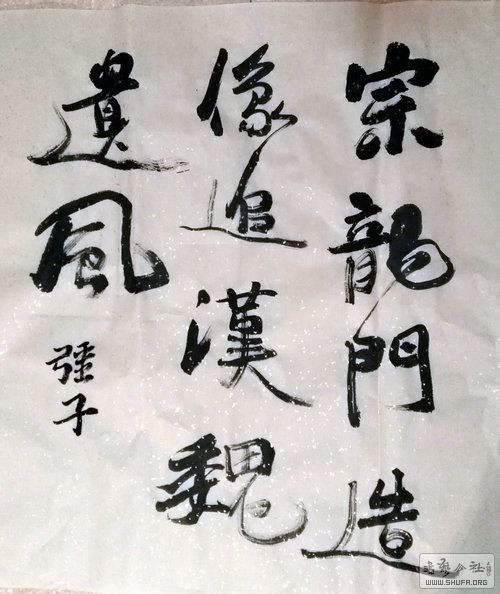 宗龍門造
像追漢魏
遺風
強子
WWW.SHUFA.ORG